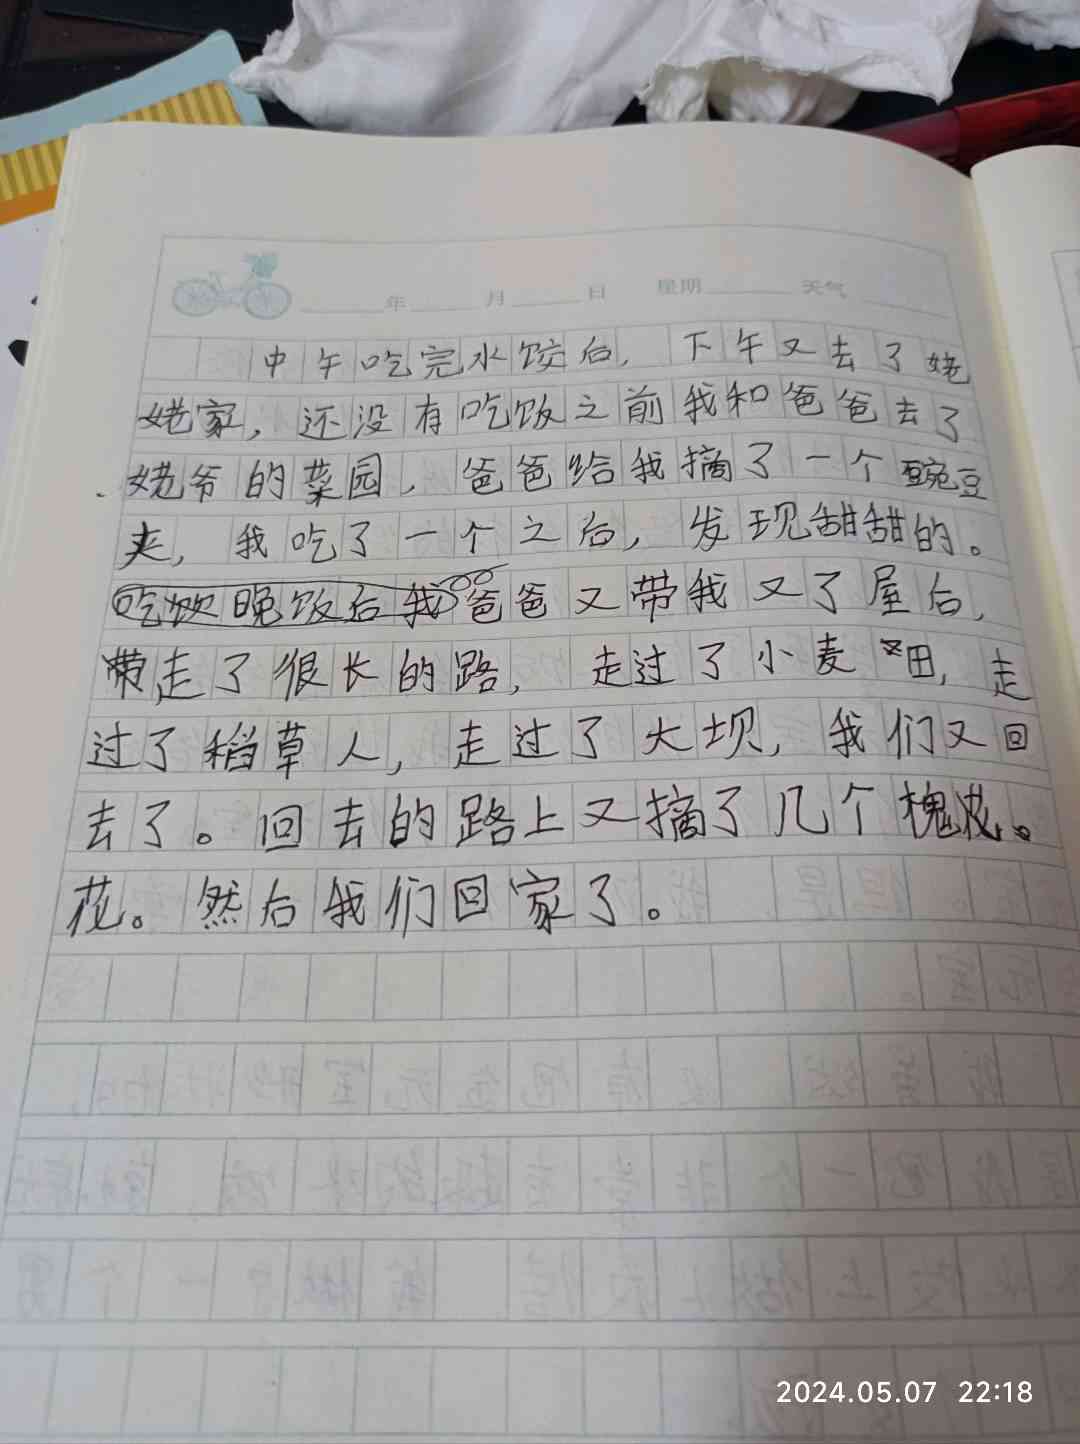 年 月 日 星期 天气
中午吃完水饺后，下午又去了姥
姥家，还没有吃饭之前我和爸爸去了
姥爷的菜园，爸爸给我摘了一个豌豆
夹，我吃了一个之后，发现甜甜的。
吃饮晚饭后我爸爸又带我又了屋后，
带走了很长的路，走过了小麦田，走
过了稻草人，走过了大坝，我们又回
去了。回去的路上又摘了几个槐花。
花。然后我们回家了。
2024.05.07 22:18